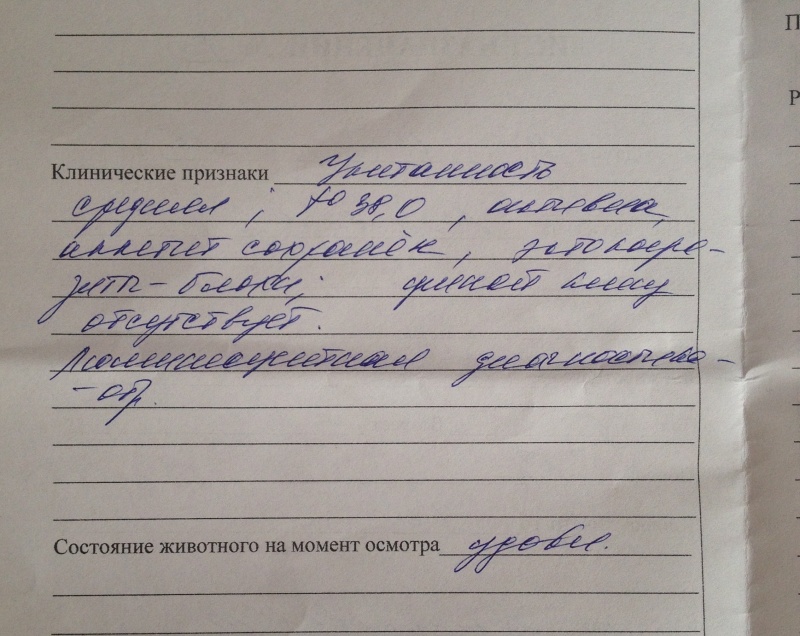 П
Р
Клинические признаки Упитанность
средняя, t° 38,0, активна,
аппетит сохранён, эктопара-
зиты - блохи;
отсутствует.
Люминисцентная диагностика -
- отр.
Состояние животного на момент осмотра удовл.